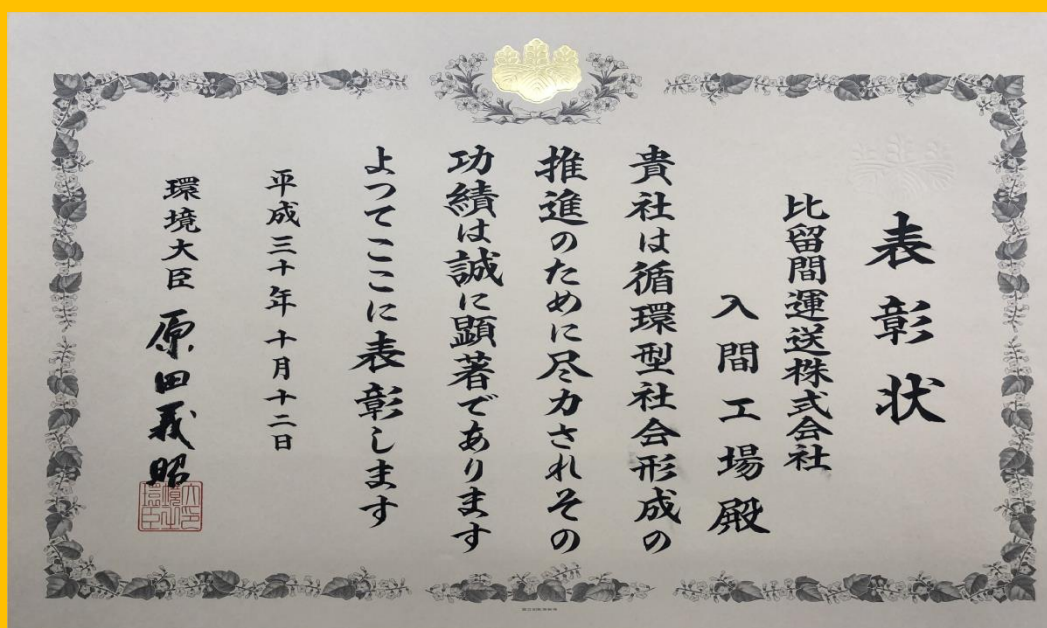 表彰状
比留間運送株式会社
入間工場殿
貴社は循環型社会形成の
推進のために尽力されその
功績は誠に顕著であります
よつてここに表彰します
平成三十年十月十二日
環境大臣 原田義昭